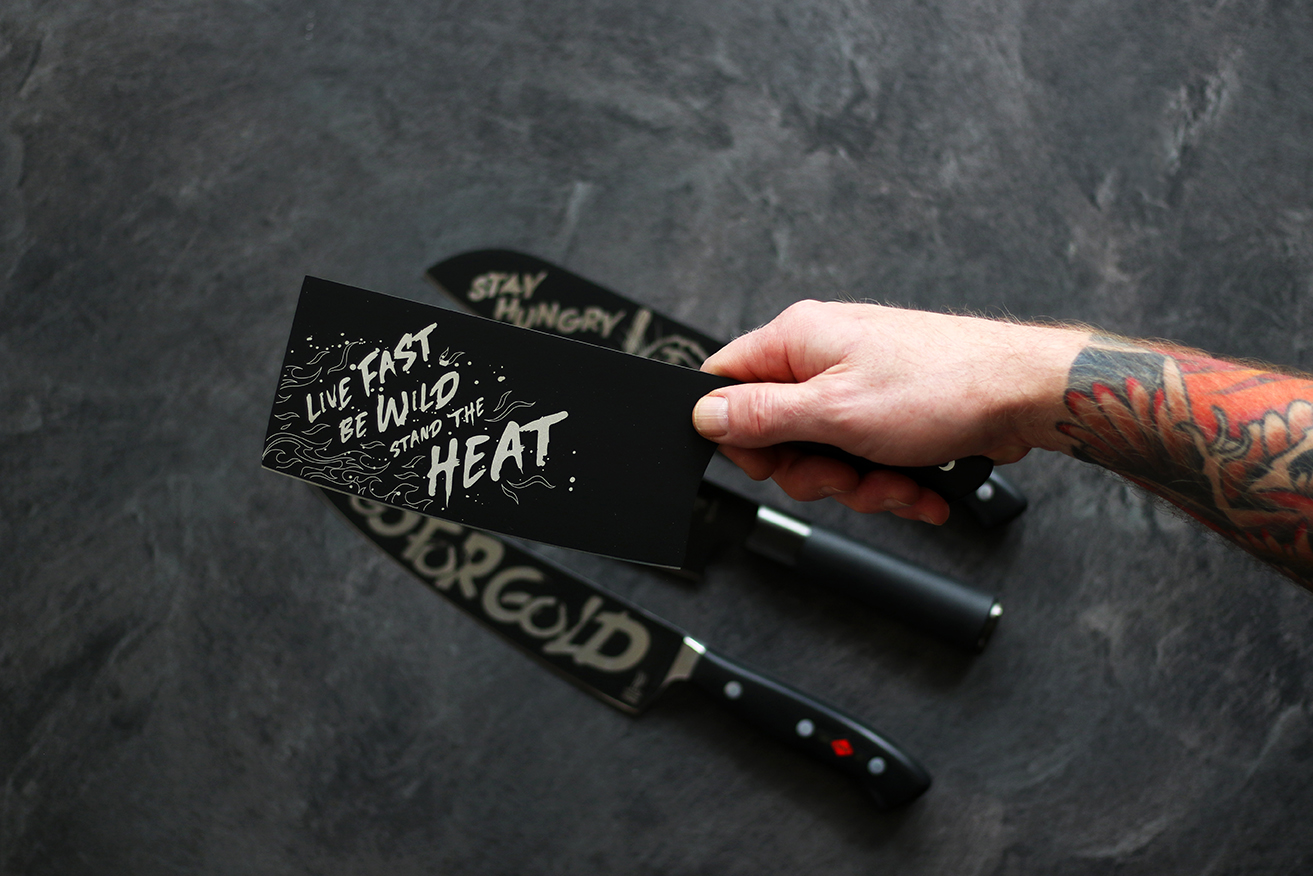 STAY
HUNGRY
LIVE FAST
BE WILD
STAND THE
HEAT
GO FOR GOLD